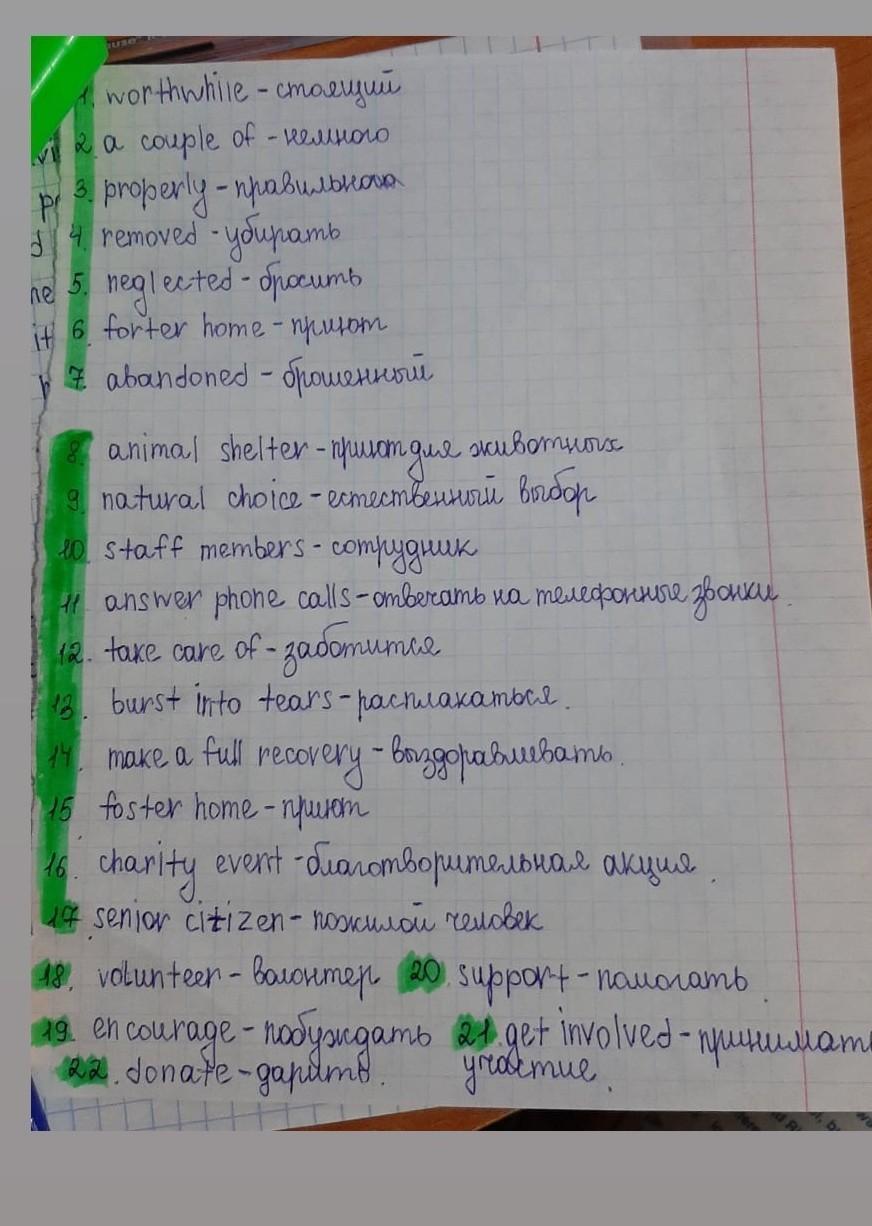 1. worthwhile - стоящий
2. a couple of - немного
3. properly - правильного
4. removed - убирать
5. neglected - бросить
6. forter home - приют
7. abandoned - брошенный
8. animal shelter - приют для животных
9. natural choice - естественный выбор
10. staff members - сотрудник
11. answer phone calls - отвечать на телефонные звонки.
12. take care of - заботится
13. burst into tears - расплакаться.
14. make a full recovery - выздоравливать.
15 foster home - приют
16. charity event - благотворительная акция.
17 senior citizen - пожилой человек
18. volunteer - волонтер 20. support - помогать
19. encourage - побуждать 21. get involved - принимать
22. donate - дарить. участие.